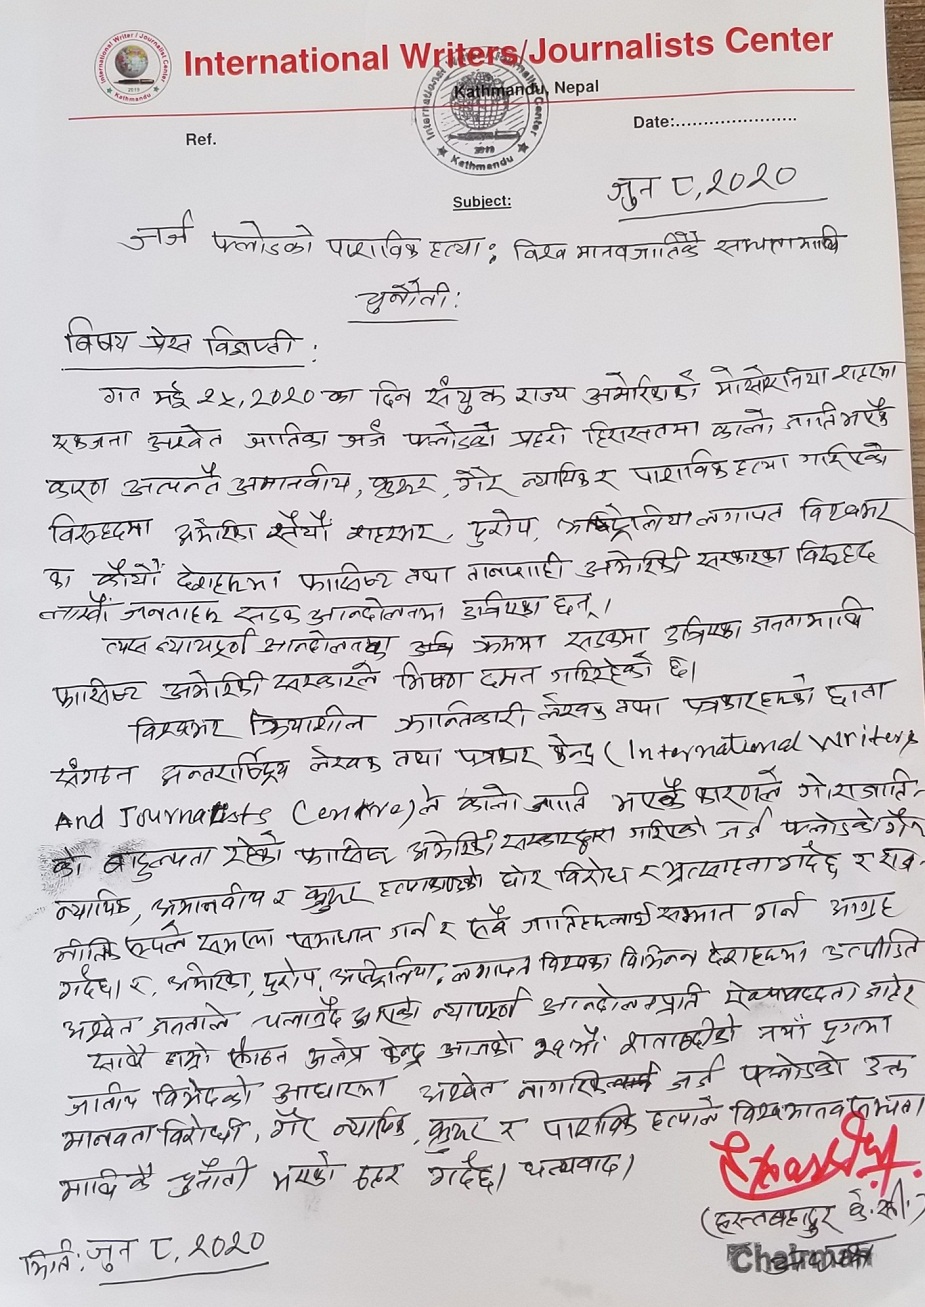 International Writers/Journalists Center
Kathmandu, Nepal
Ref.
Date:.....................
Subject:
जुन ८, 2020
जर्ज फ्लोडको पाशविक हत्या : विश्व मानवजातिकै सभ्यतामाथि
चुनौती :
विषय प्रेस विज्ञप्ती :
गत मई २५, 2020 का दिन संयुक्त राज्य अमेरिकाको शहरमा
एकजना अश्वेत जातिका जर्ज फ्लोडको प्रहरी हिरासतमा कालो जाति भएकै
कारण अत्यन्तै अमानवीय, क्रुर, गैर न्यायिक र पाशविक हत्या गरिएको
विरुद्दमा अमेरिका शहरभर, युरोप, अष्ट्रेलिया लगायत विश्वभर
का कैयौं देशहरुमा फासिष्ट तथा तानाशाही अमेरिकी सरकारका विरुद्द
लाखौं जनताहरु सडक आन्दोलनमा उत्रिएका छन् ।
त्यस न्यायपूर्ण आन्दोलनका क्रममा सडकमा उत्रिएका जनतामाथि
फासिष्ट अमेरिकी सरकारले भिषण दमन गरिरहेको छ।
विश्वभर क्रियाशील क्रान्तिकारी लेखक तथा पत्रकारहरुको छाता
संगठन अन्तरार्ष्ट्रिय लेखक तथा पत्रकार केन्द्र (International Writers
And Journalists Centre) ले कालो जाति भएकै कारणले गोराजाति-
को बाहुल्यता रहेको फासिष्ट अमेरिकी सरकारद्वारा गरिएको जर्ज फ्लोडको गैर
न्यायिक, अमानवीय र क्रुर हत्याकाण्डको घोर विरोध र भर्त्सना गर्दछ र
रुपले समस्या समाधान गर्न र सबै जातिहरुलाई सम्मान गर्न आग्रह
गर्दछ। र, अमेरिका, युरोप, अष्ट्रेलिया, लगायत विश्वका विभिन्न देशहरुमा उत्पीडित
अश्वेत जनताले चलाउँदै आएको न्यायपूर्ण आन्दोलनप्रति ऐक्यवद्दता जाहेर
साथै हाम्रो संगठन अलेप केन्द्र आजको २१औं शताब्दीको नयाँ युगमा
जातीय विभेदको आधारमा अश्वेत नागरिक जर्ज फ्लोडको उक्त
मानवता विरोधी, गैर न्यायिक, क्रुर र पाशविक हत्याले विश्वमानव सभ्यता
माथि कै चुनौती भएको ठहर गर्दछ। धन्यवाद।
(हस्तबहादुर के.सी.)
Chairman
मिति: जुन ८, 2020